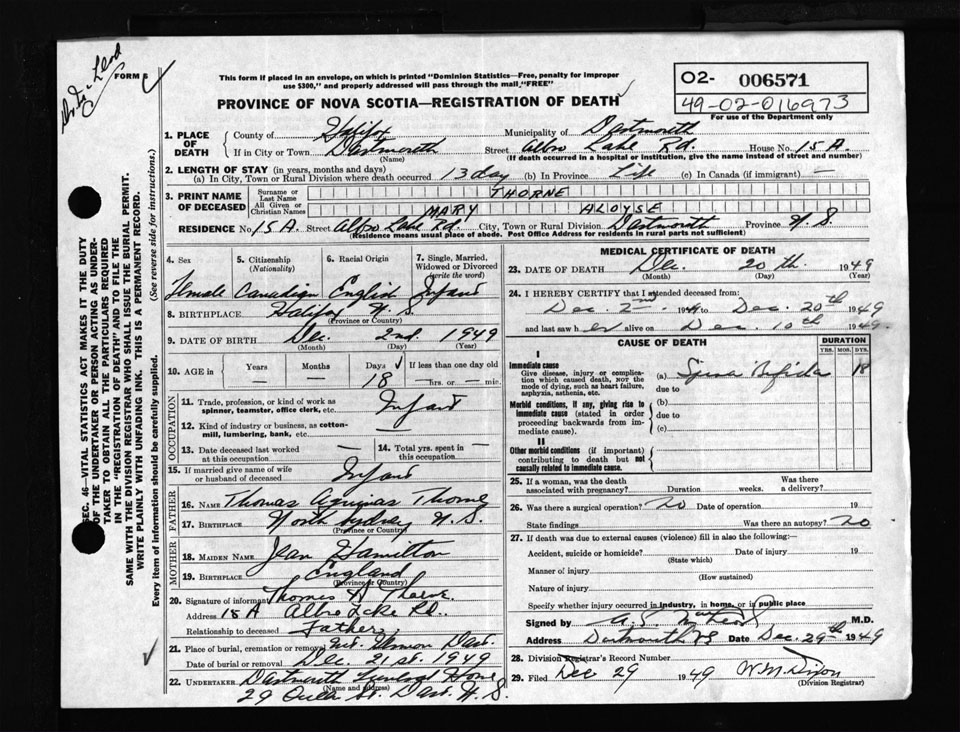 Dr. McLeod
FORM C
This form if placed in an envelope, on which is printed "Dominion Statistics—Free, penalty for improper
use $300," and properly addressed will pass through the mail "FREE"
PROVINCE OF NOVA SCOTIA—REGISTRATION OF DEATH
O2- 006571
49-02-016973
For use of the Department only
1. PLACE OF DEATH County of Halifax Municipality of Dartmouth
If in City or Town Dartmouth Street Albro Lake Rd. House No. 15A.
(Name) (If death occurred in a hospital or institution, give the name instead of street and number)
2. LENGTH OF STAY (in years, months and days)
(a) In City, Town or Rural Division where death occurred 13 day (b) In Province Life (c) In Canada (if immigrant) —
3. PRINT NAME OF DECEASED Surname or Last Name THORNE
All Given or Christian Names MARY ALOYSE
RESIDENCE No. 15A. Street Albro Lake Rd. City, Town or Rural Division Dartmouth Province N.S.
(Residence means usual place of abode. Post Office Address for residents in rural parts not sufficient)
4. Sex 5. Citizenship (Nationality) 6. Racial Origin 7. Single, Married, Widowed or Divorced (write the word)
Female Canadian English Infant
8. BIRTHPLACE Halifax N.S.
(Province or Country)
9. DATE OF BIRTH Dec. 2nd. 1949
(Month) (Day) (Year)
10. AGE in Years Months Days If less than one day old
— — 18 — hrs. or — min.
OCCUPATION
11. Trade, profession, or kind of work as spinner, teamster, office clerk, etc. Infant
12. Kind of industry or business, as cotton-mill, lumbering, bank, etc. —
13. Date deceased last worked at this occupation — 14. Total yrs. spent in this occupation —
15. If married give name of wife or husband of deceased Infant
FATHER
16. NAME Thomas Aquinas Thorne
17. BIRTHPLACE North Sydney N.S.
(Province or Country)
MOTHER
18. MAIDEN NAME Jean Hamilton
19. BIRTHPLACE England
(Province or Country)
20. Signature of informant Thomas A Thorne
Address 15A Albro Lake RD.
Relationship to deceased Father
21. Place of burial, cremation or removal Mt. Hermon Dart.
Date of burial or removal Dec. 21st. 1949
22. UNDERTAKER Dartmouth Funeral Home
(Name and address)
29 Queen St. Dart. N.S.
MEDICAL CERTIFICATE OF DEATH
23. DATE OF DEATH Dec. 20th. 1949
(Month) (Day) (Year)
24. I HEREBY CERTIFY that I attended deceased from:
Dec. 2nd 1949 to Dec. 20th 1949
and last saw her alive on Dec. 10th 1949.
CAUSE OF DEATH DURATION
YRS. MOS. DYS.
I
Immediate cause
Give disease, injury or complication which caused death, not the mode of dying, such as heart failure, asphyxia, asthenia, etc.
(a) Spina Bifida 18
due to
Morbid conditions, if any, giving rise to immediate cause (stated in order proceeding backwards from immediate cause).
(b)
due to
(c)
II
Other morbid conditions (if important) contributing to death but not causally related to immediate cause.
25. If a woman, was the death associated with pregnancy? Duration weeks. Was there a delivery?
26. Was there a surgical operation? no Date of operation 19
State findings Was there an autopsy? no
27. If death was due to external causes (violence) fill in also the following:
Accident, suicide or homicide? Date of injury 19
(State which)
Manner of injury
(How sustained)
Nature of injury
Specify whether injury occurred in industry, in home, or in public place
Signed by A. S. McLeod M.D.
Address Dartmouth NS Date Dec. 29th 1949
28. Division Registrar's Record Number
29. Filed Dec 29 1949 W. M. Dixon
(Division Registrar)
SEC. 46—VITAL STATISTICS ACT MAKES IT THE DUTY
OF THE UNDERTAKER OR PERSON ACTING AS UNDER-
TAKER TO OBTAIN ALL THE PARTICULARS REQUIRED
IN THE "REGISTRATION OF DEATH" AND TO FILE THE
SAME WITH THE DIVISION REGISTRAR WHO SHALL ISSUE THE BURIAL PERMIT.
WRITE PLAINLY WITH UNFADING INK. THIS IS A PERMANENT RECORD.
Every item of information should be carefully supplied. (See reverse side for instructions.)